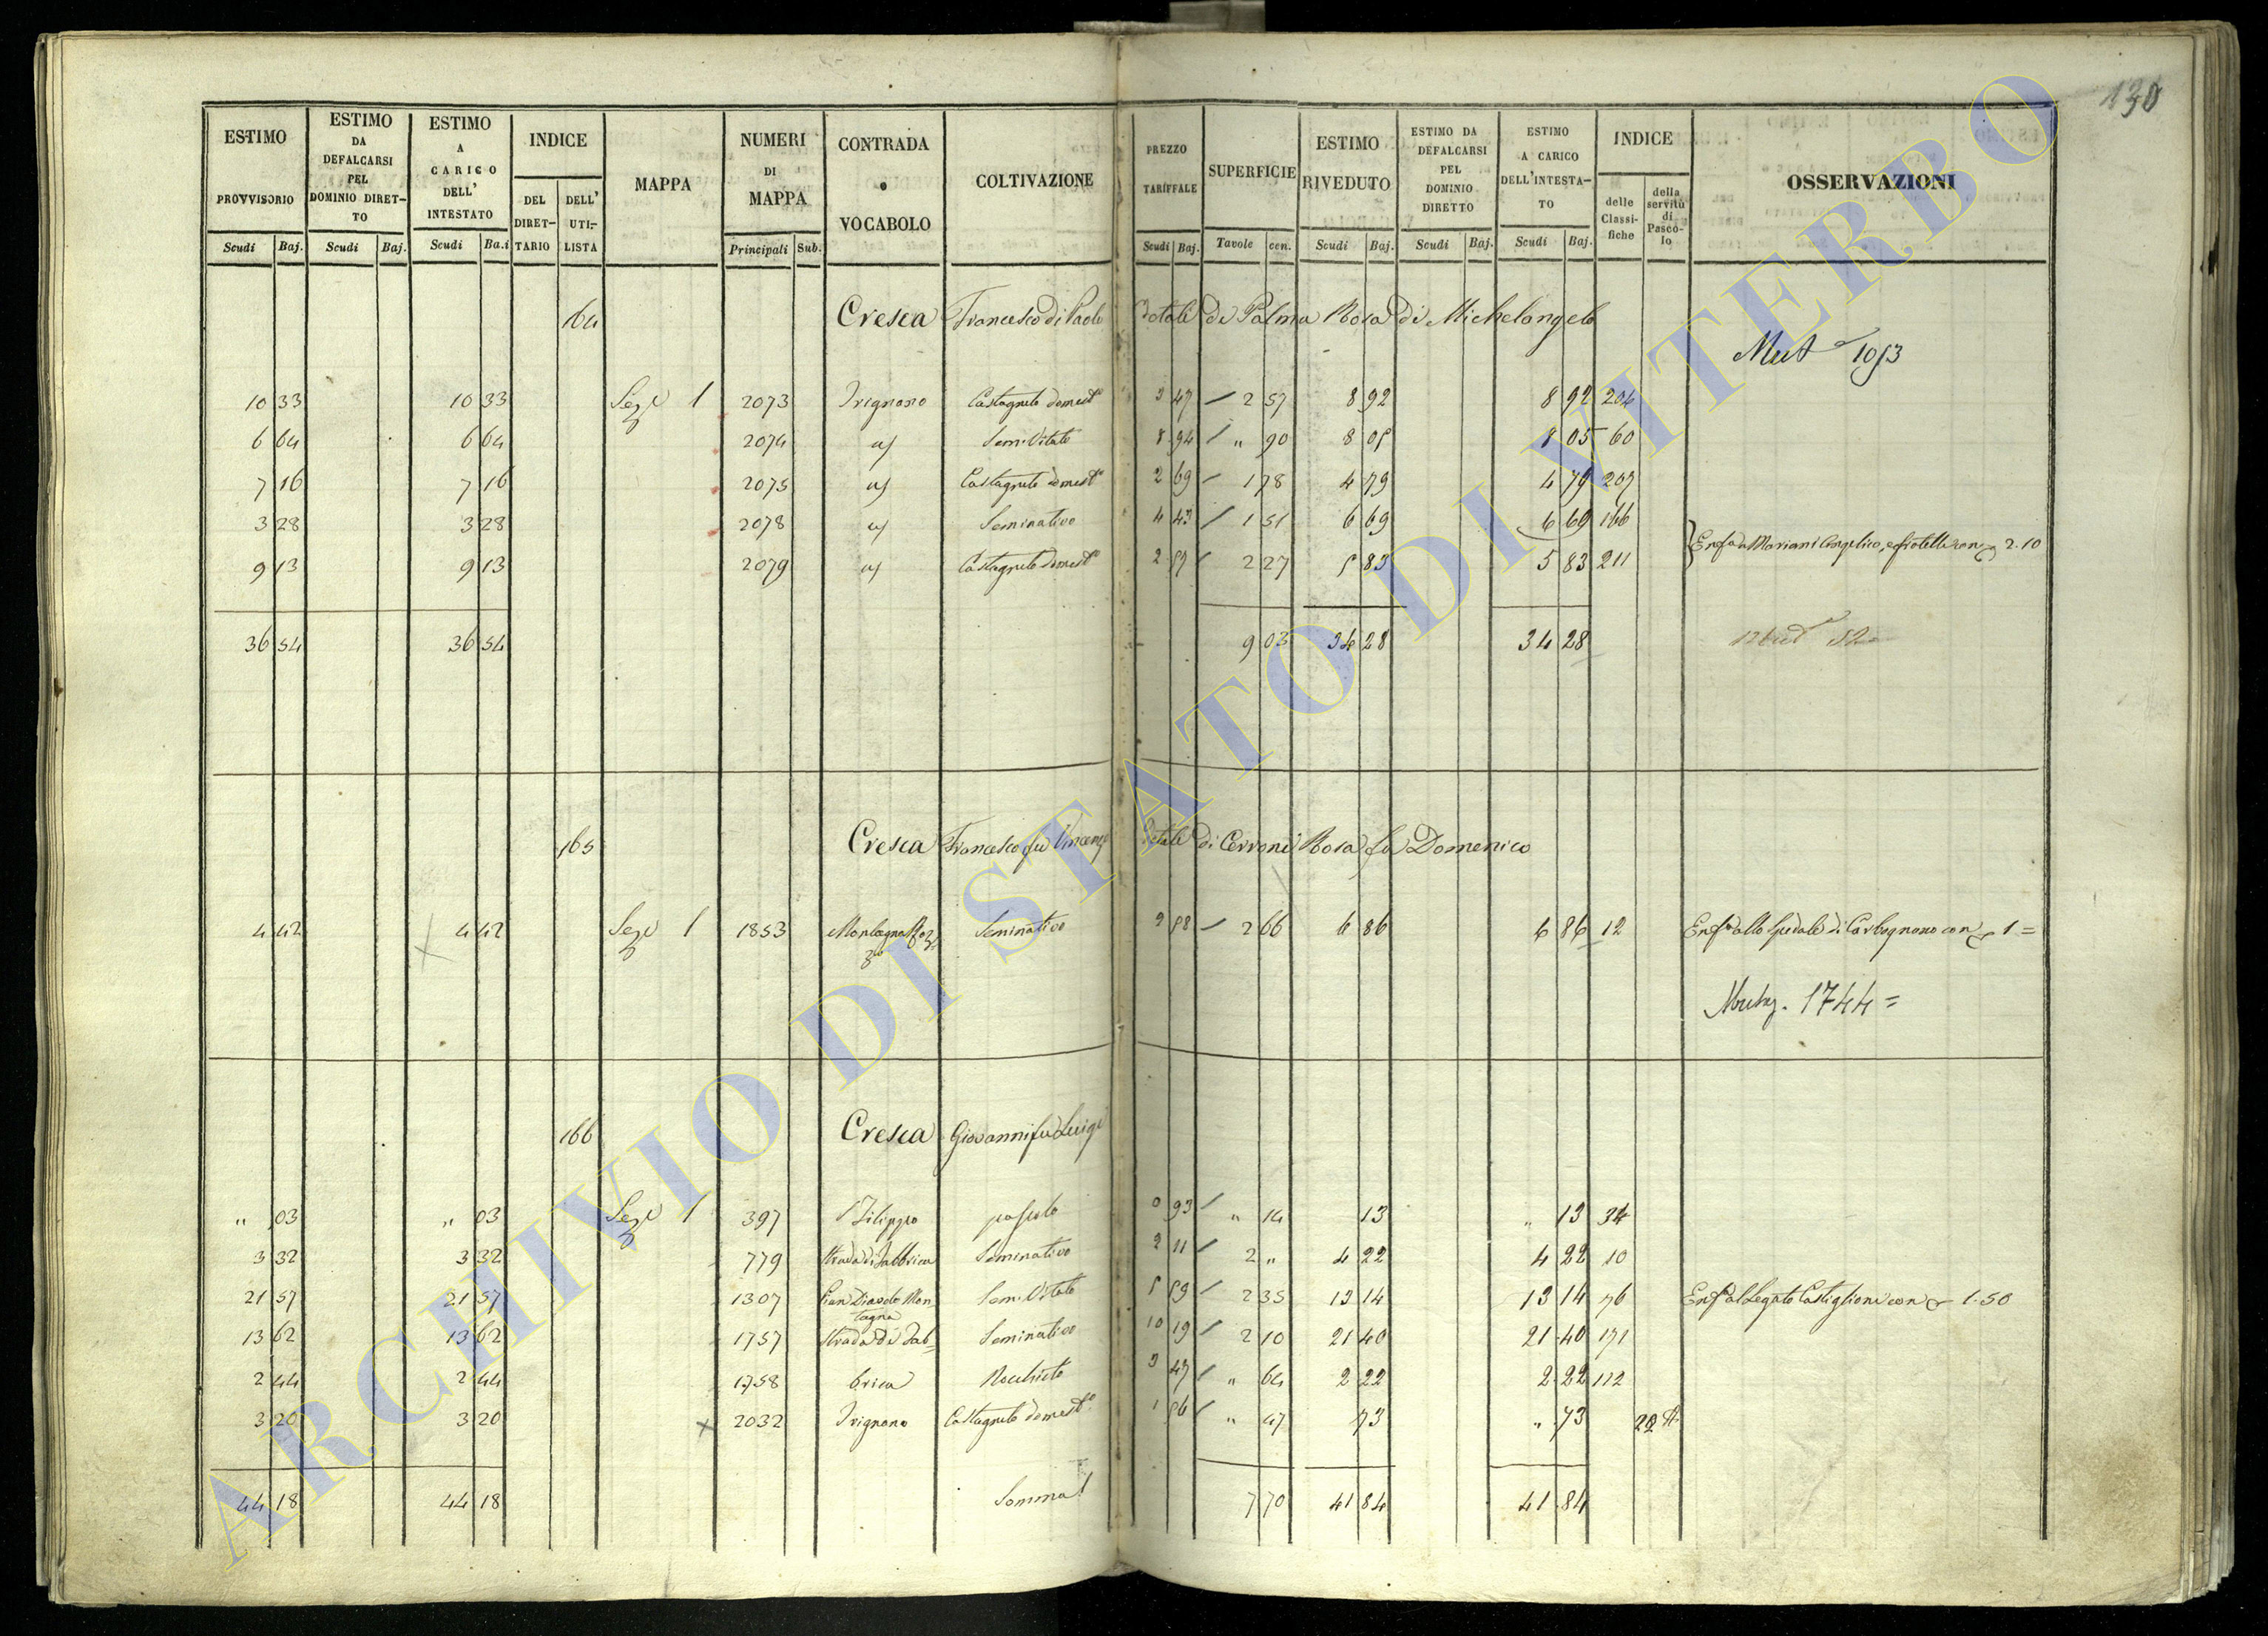 130
ESTIMO PROVVISORIO Scudi Baj.
ESTIMO DA DEFALCARSI PEL DOMINIO DIRET-TO Scudi Baj.
ESTIMO A CARICO DELL' INTESTATO Scudi Ba.i
INDICE DEL DIRET-TARIO DELL' UTI-LISTA
MAPPA
NUMERI DI MAPPA Principali Sub.
CONTRADA o VOCABOLO
COLTIVAZIONE
PREZZO TARIFFALE Scudi Baj.
SUPERFICIE Tavole cen.
ESTIMO RIVEDUTO Scudi Baj.
ESTIMO DA DEFALCARSI PEL DOMINIO DIRETTO Scudi Baj.
ESTIMO A CARICO DELL'INTESTA-TO Scudi Baj.
INDICE delle Classi-fiche della servitù di Pasco-lo
OSSERVAZIONI
164 Cresca Francesco di Paolo dotale di Palma Rosa di Michelangelo
Mut 1053
10 33 10 33 Sez 1 2073 Irignano Castagneto domest 3 47 2 57 8 92 8 92 204
6 64 6 64 2074 Sem. Vitato 8 94 " 90 8 05 8 05 60
7 16 7 16 2075 Castagneto domest 2 69 1 78 4 79 4 79 207
3 28 3 28 2078 Seminativo 4 43 1 51 6 69 6 69 166
9 13 9 13 2079 Castagneto domest 2 57 2 27 5 83 5 83 211 Enf a Mariani Angelico, e fratelli con 2.10
36 54 36 54 9 03 34 28 34 28
165 Cresca Francesco fu Vincenzo dotale di Cerroni Rosa fu Domenico
4 42 4 42 Sez 1 1853 Seminativo 2 58 2 66 6 86 6 86 12 Enf allo Spedale di Carbognano con 1 =
1744 =
166 Cresca Giovanni fu Luigi
" 03 " 03 Sez 1 397 S Filippo pascolo 0 93 " 14 13 " 13 34
3 32 3 32 779 Strada di Fabbrica Seminativo 2 11 2 " 4 22 4 22 10
21 57 21 57 1307 Sem. Vitato 5 59 2 35 13 14 13 14 76 Enf al Legato Castiglioni con 1.50
13 62 13 62 1757 Strada di Fab= Seminativo 10 19 2 10 21 40 21 40 171
2 44 2 44 1758 brica 3 47 " 64 2 22 2 22 112
3 20 3 20 2032 Irignano Castagneto domest. 1 56 " 47 73 " 73
44 18 44 18 Somma 7 70 41 84 41 84
ARCHIVIO DI STATO DI VITERBO